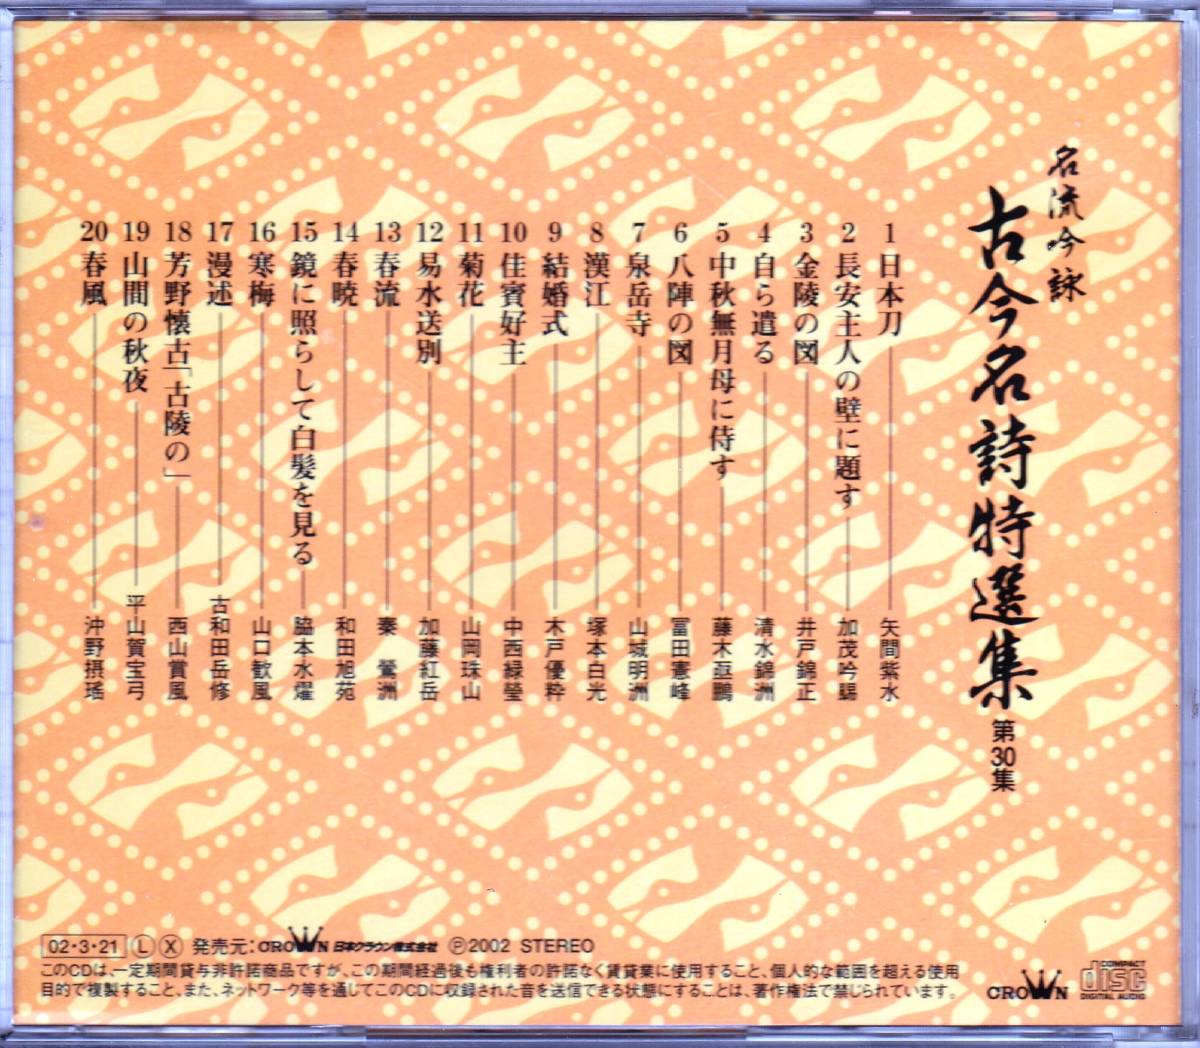 名流吟詠
古今名詩特選集 第30集
1 日本刀 矢間紫水
2 長安主人の壁に題す 加茂吟賜
3 金陵の図 井戸錦正
4 自ら遣る 清水錦洲
5 中秋無月母に侍す 藤木亟鵬
6 八陣の図 冨田憲峰
7 泉岳寺 山城明洲
8 漢江 塚本白光
9 結婚式 木戸優粋
10 佳賓好主 中西緑瑩
11 菊花 山岡珠山
12 易水送別 加藤紅岳
13 春流 秦 鶯洲
14 春暁 和田旭苑
15 鏡に照らして白髪を見る 脇本水燿
16 寒梅 山口歓風
17 漫述 古和田岳修
18 芳野懐古「古陵の」 西山賞風
19 山間の秋夜 平山賀宝弓
20 春風 沖野摂瑤
02・3・21 Ⓛ Ⓧ 発売元:CROWN 日本クラウン株式会社 Ⓟ2002 STEREO
このCDは、一定期間貸与非許諾商品ですが、この期間経過後も権利者の許諾なく賃貸業に使用すること、個人的な範囲を超える使用
目的で複製すること、また、ネットワーク等を通じてこのCDに収録された音を送信できる状態にすることは、著作権法で禁じられています。
CROWN
COMPACT
disc
DIGITAL AUDIO